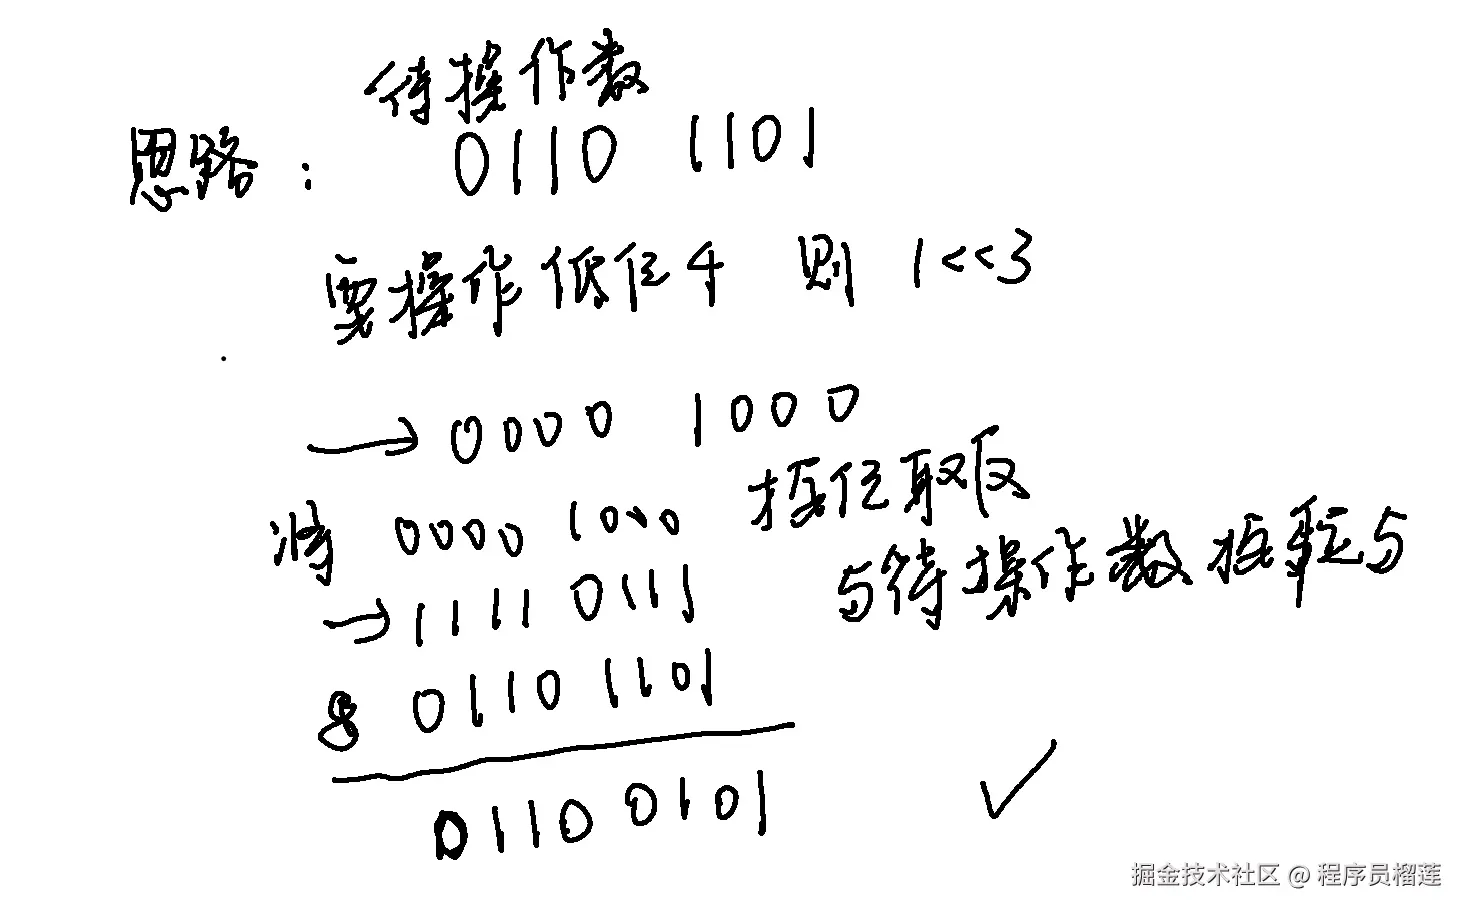 待操作数
思路： 0110 1101
要操作低位4 则 1<<3
→ 0000 1000
将 0000 1000 按位取反
→ 1111 0111 与待操作数按位与
& 0110 1101
0110 0101 ✓
掘金技术社区 @ 程序员榴莲